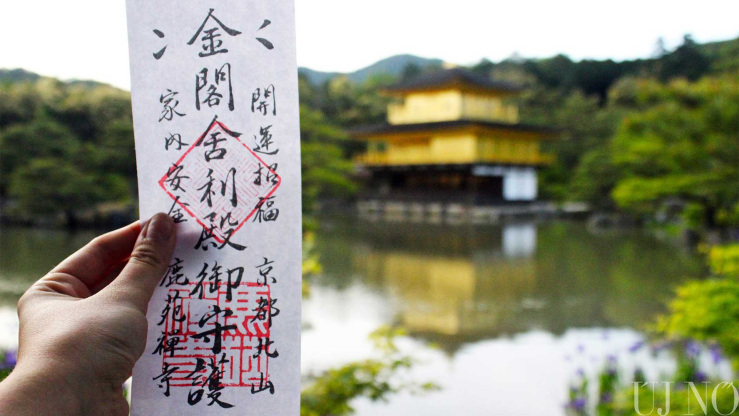 開運招福 京都北山
金閣舎利殿御守護
家内安全 鹿苑禅寺
ÚJ NŐ